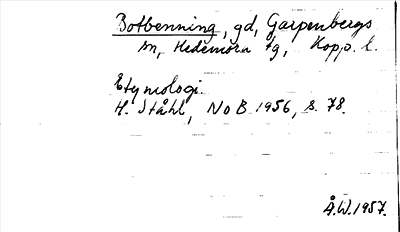 Botbenning, gd, Garpenbergs
sn, Hedemora tg, Kopp. l.
Etymologi.
H. Ståhl, NoB 1956, s. 78.
Å.W. 1957.